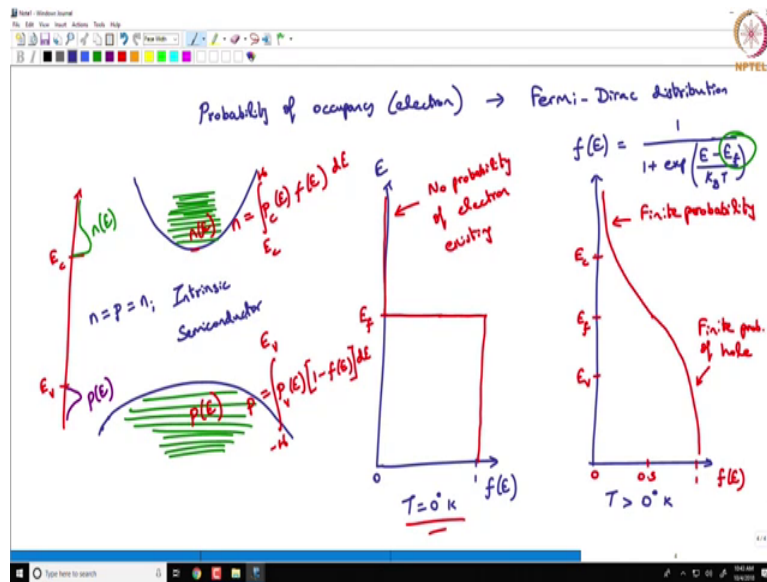 Note1 - Windows Journal
File Edit View Insert Actions Tools Help
Page Width
B I
NPTEL
Probability of occupancy (electron) → Fermi-Dirac distribution
f(E) = 1 / (1 + exp((E - E_f) / K_B T))
n(E)
E_c
n(E)
n = ∫_{E_c}^{∞} ρ_c(E) f(E) dE
n = p = n_i Intrinsic
Semiconductor
E_v
p(E)
p(E)
p = ∫_{-∞}^{E_v} ρ_v(E) [1 - f(E)] dE
E
No probability
of electron
existing
E_f
0
1
f(E)
T = 0° K
Finite probability
E_c
E_f
E_v
Finite prob.
of hole
0
0.5
1
f(E)
T > 0° K
4/4
4
Type here to search
10:43 AM
10/4/2018